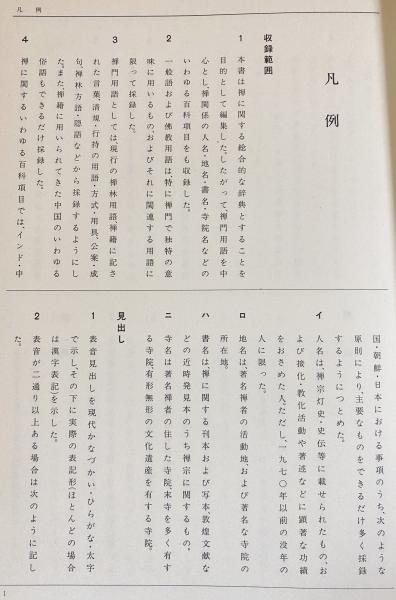 凡例
凡例
収録範囲
1 本書は禅に関する総合的な辞典とすることを
目的として編集した。したがって、禅門用語を中
心とし、禅関係の人名・地名・書名・寺院名などの
いわゆる百科項目をも収録した。
2 一般語および佛教用語は、特に禅門で独特の意
味に用いるもの、およびそれに関連する用語に
限って採録した。
3 禅門用語としては、現行の禅林用語、禅籍に記さ
れた言葉、清規・行持の用語・方式・用具、公案・成
句、禅林方語・隠語などから採録するようにし
た。また、禅籍に用いられてきた中国のいわゆる
俗語もできるだけ採録した。
4 禅に関するいわゆる百科項目では、インド・中
国・朝鮮・日本における事項のうち、次のような
原則により、主要なものをできるだけ多く採録
するようにつとめた。
イ 人名は、禅宗灯史・史伝等に載せられたもの、お
よび接化・教化活動や著述などに顕著な功績
をおさめた人。ただし、一九七〇年以前の没年の
人に限った。
ロ 地名は、著名禅者の活動地、および著名な寺院の
所在地。
ハ 書名は、禅に関する刊本および写本、敦煌文献な
どの近時発見本のうち禅宗に関するもの。
ニ 寺名は、著名禅者の住した寺院、末寺を多く有す
る寺院、有形無形の文化遺産を有する寺院。
見出し
1 表音見出しを現代かなづかい・ひらがな・太字
で示し、その下に実際の表記形(ほとんどの場合
は漢字表記)を示した。
2 表音が二通り以上ある場合は次のように記し
た。
1